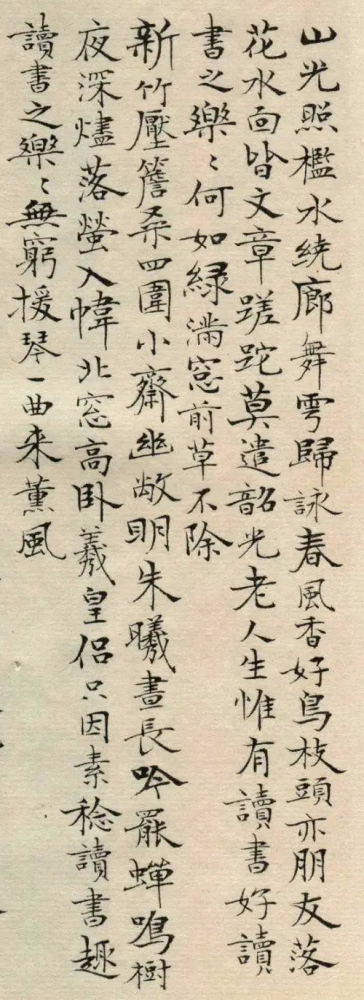 山光照檻水繞廊舞雩歸詠春風香好鳥枝頭亦朋友落
花水面皆文章蹉跎莫遣韶光老人生惟有讀書好讀
書之樂〻何如綠滿窓前草不除
新竹壓簷桑四圍小齋幽敞明朱曦晝長吟罷蟬鳴樹
夜深燼落螢入幃北窓高卧羲皇侶只因素稔讀書趣
讀書之樂〻無窮援琴一曲来薰風